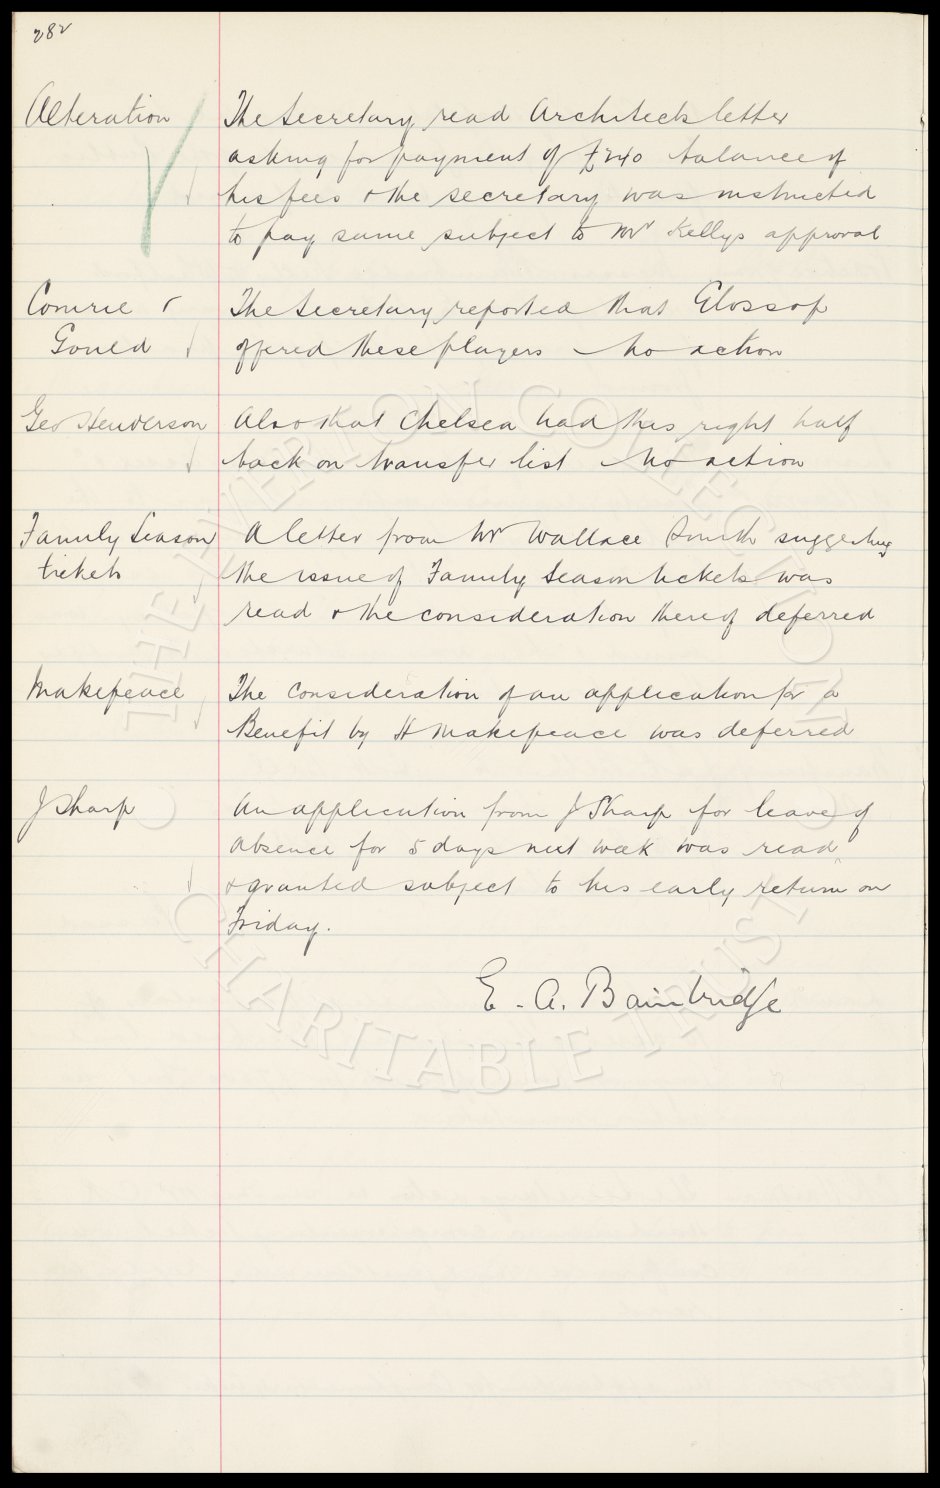 282
Alteration The Secretary read Architects letter
asking for payment of £240 balance of
his fees & the secretary was instructed
to pay same subject to Mr Kellys approval
Comrie & The Secretary reported that Glossop
Gould offered these players No action
Geo Henderson Also that Chelsea had this right half
back on transfer list No action
Family Season A letter from Mr Wallace Smith suggesting
tickets the issue of Family Season tickets was
read & the consideration thereof deferred
Makepeace The consideration of an application for a
Benefit by H Makepeace was deferred
J Sharp An application from J Sharp for leave of
absence for 5 days next week was read
& granted subject to his early return on
Friday.
E. A. Bainbridge
THE EVERTON COLLECTION
CHARITABLE TRUST